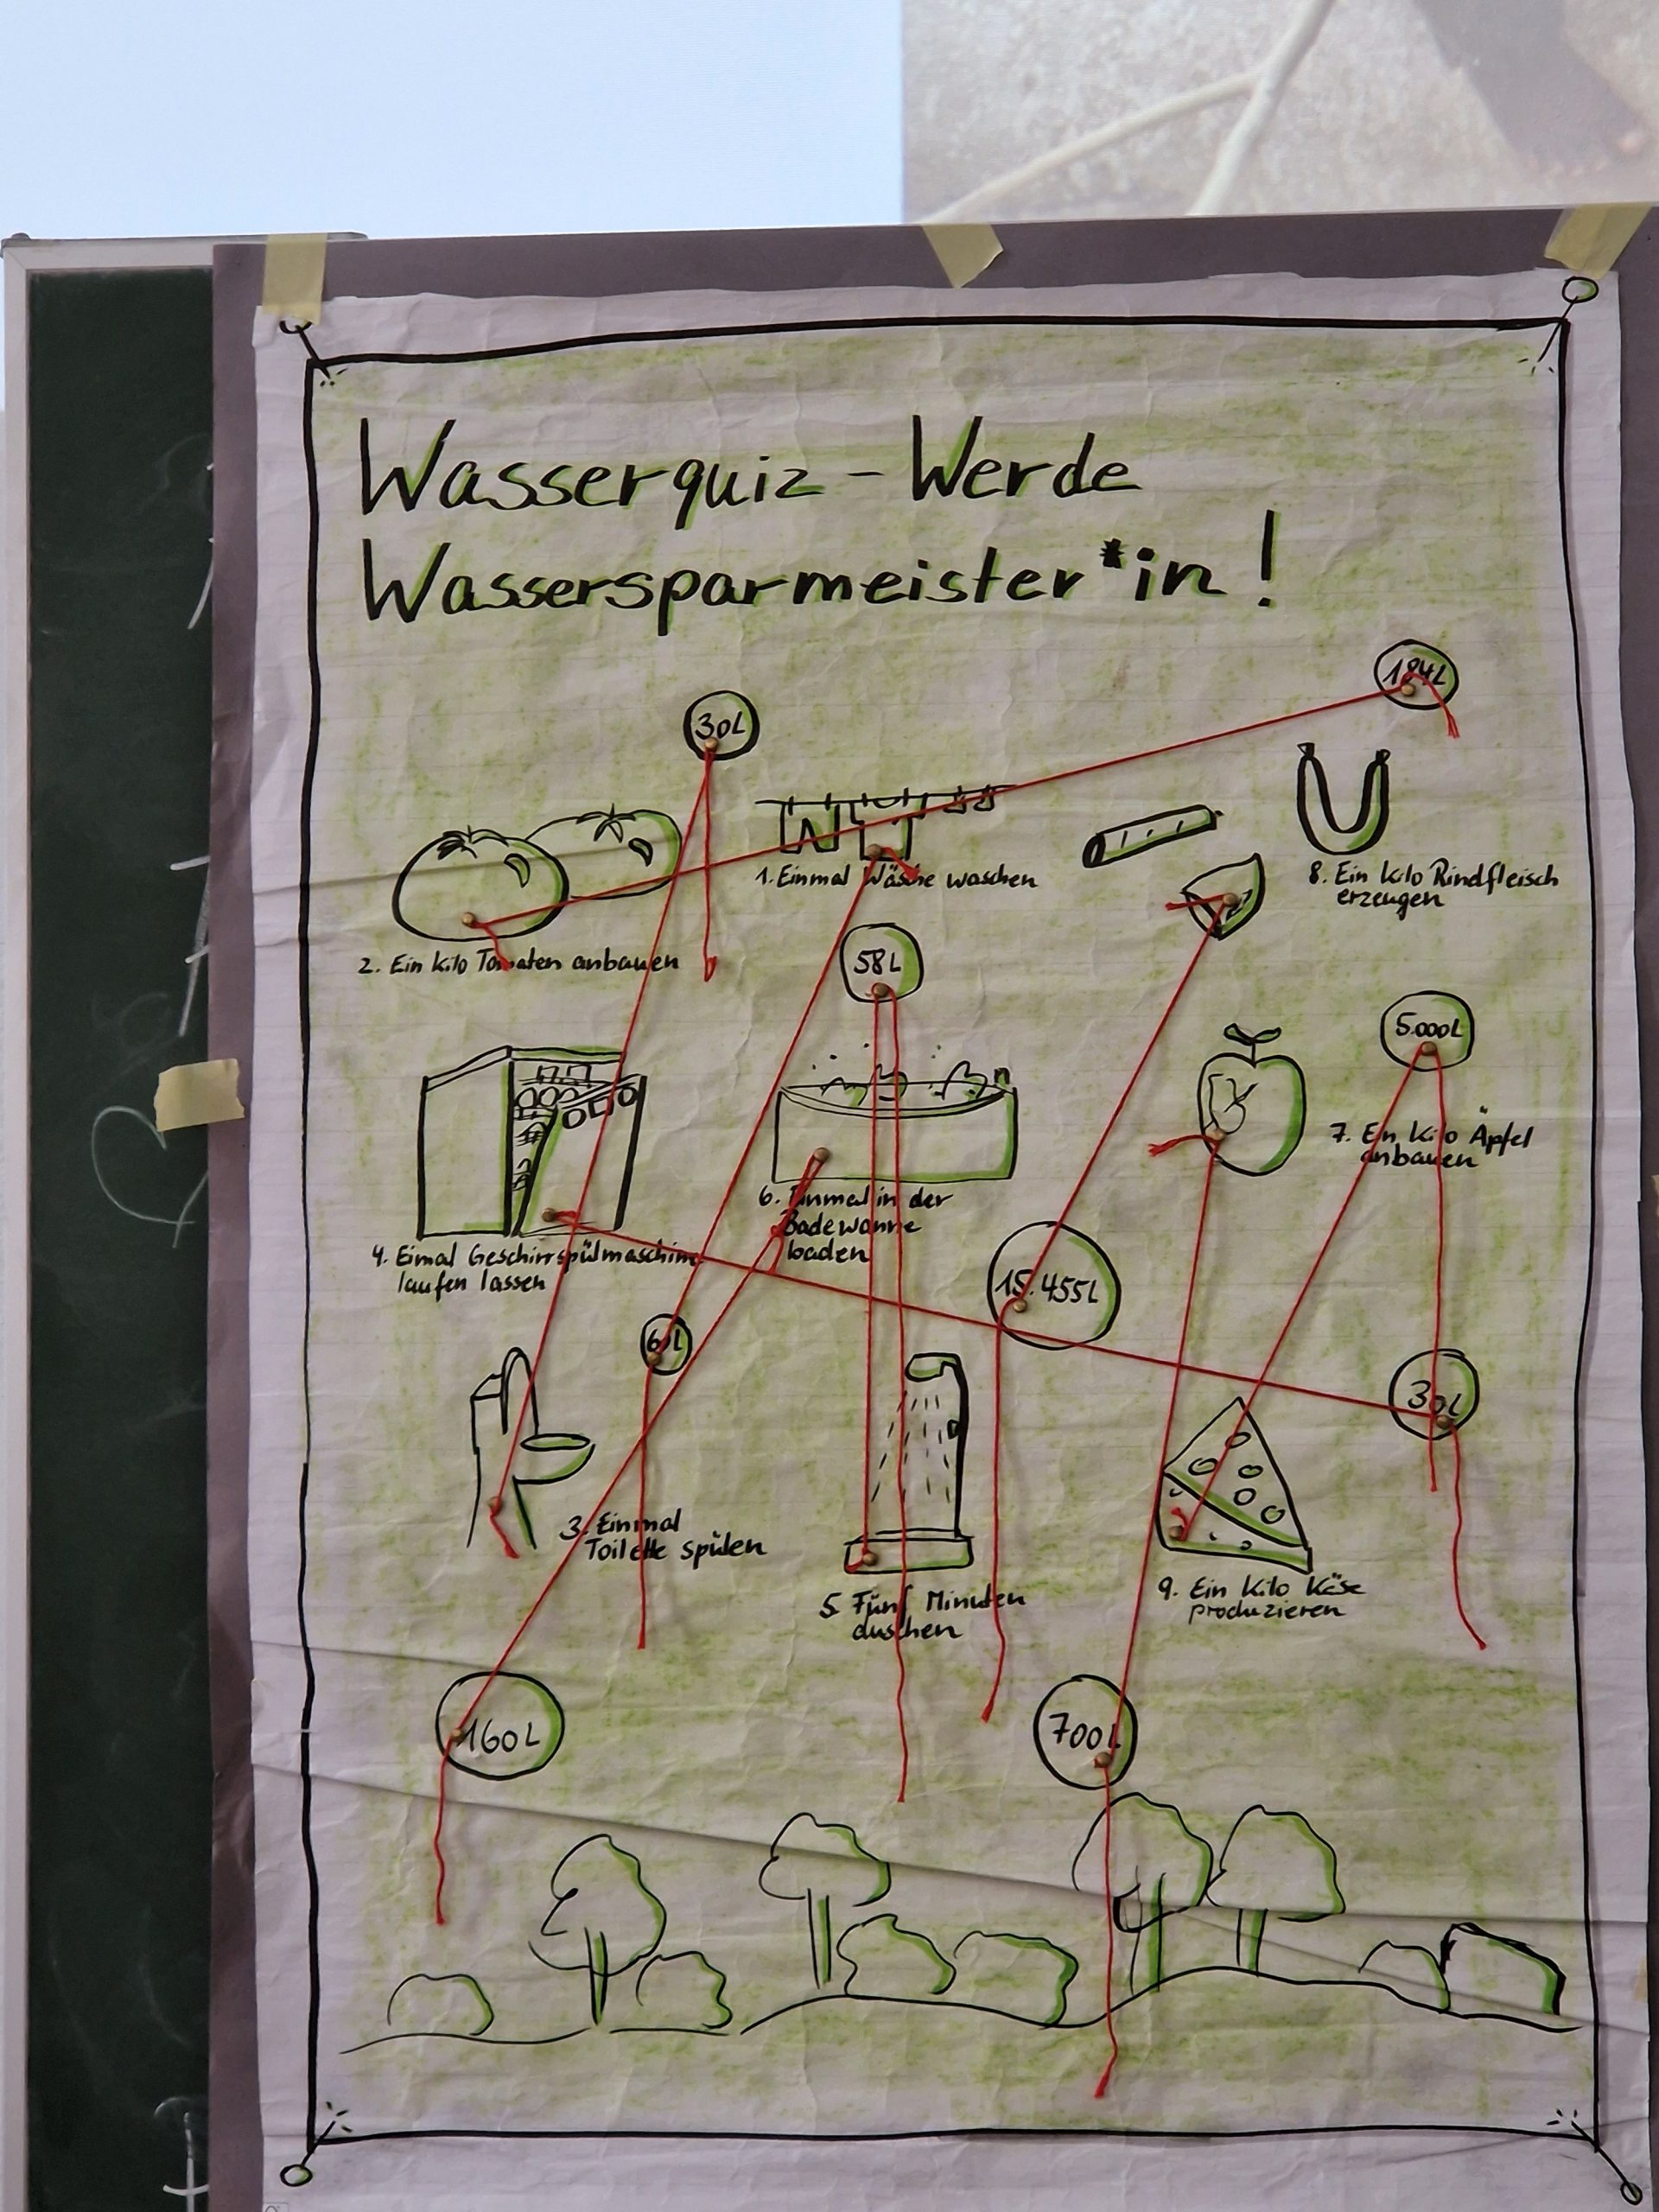 Wasserquiz - Werde
Wassersparmeister*in!
184L
30L
1. Einmal Wäsche waschen
8. Ein Kilo Rindfleisch
erzeugen
2. Ein Kilo Tomaten anbauen
58L
5.000L
7. Ein Kilo Äpfel
anbauen
6. Einmal in der
Badewanne
baden
4. Eimal Geschirrspülmaschine
laufen lassen
15.455L
60L
30L
3. Einmal
Toilette spülen
5. Fünf Minuten
duschen
9. Ein Kilo Käse
produzieren
160L
700L